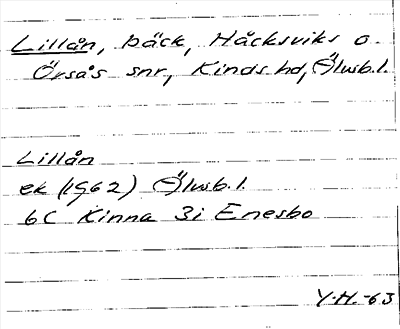 Lillån, bäck, Håcksviks o.
Örsås snr, Kinds hd, Älvsb.l.
Lillån
ek (1962) Älvsb.l.
6C Kinna 3i Enesbo
Y.H.-63